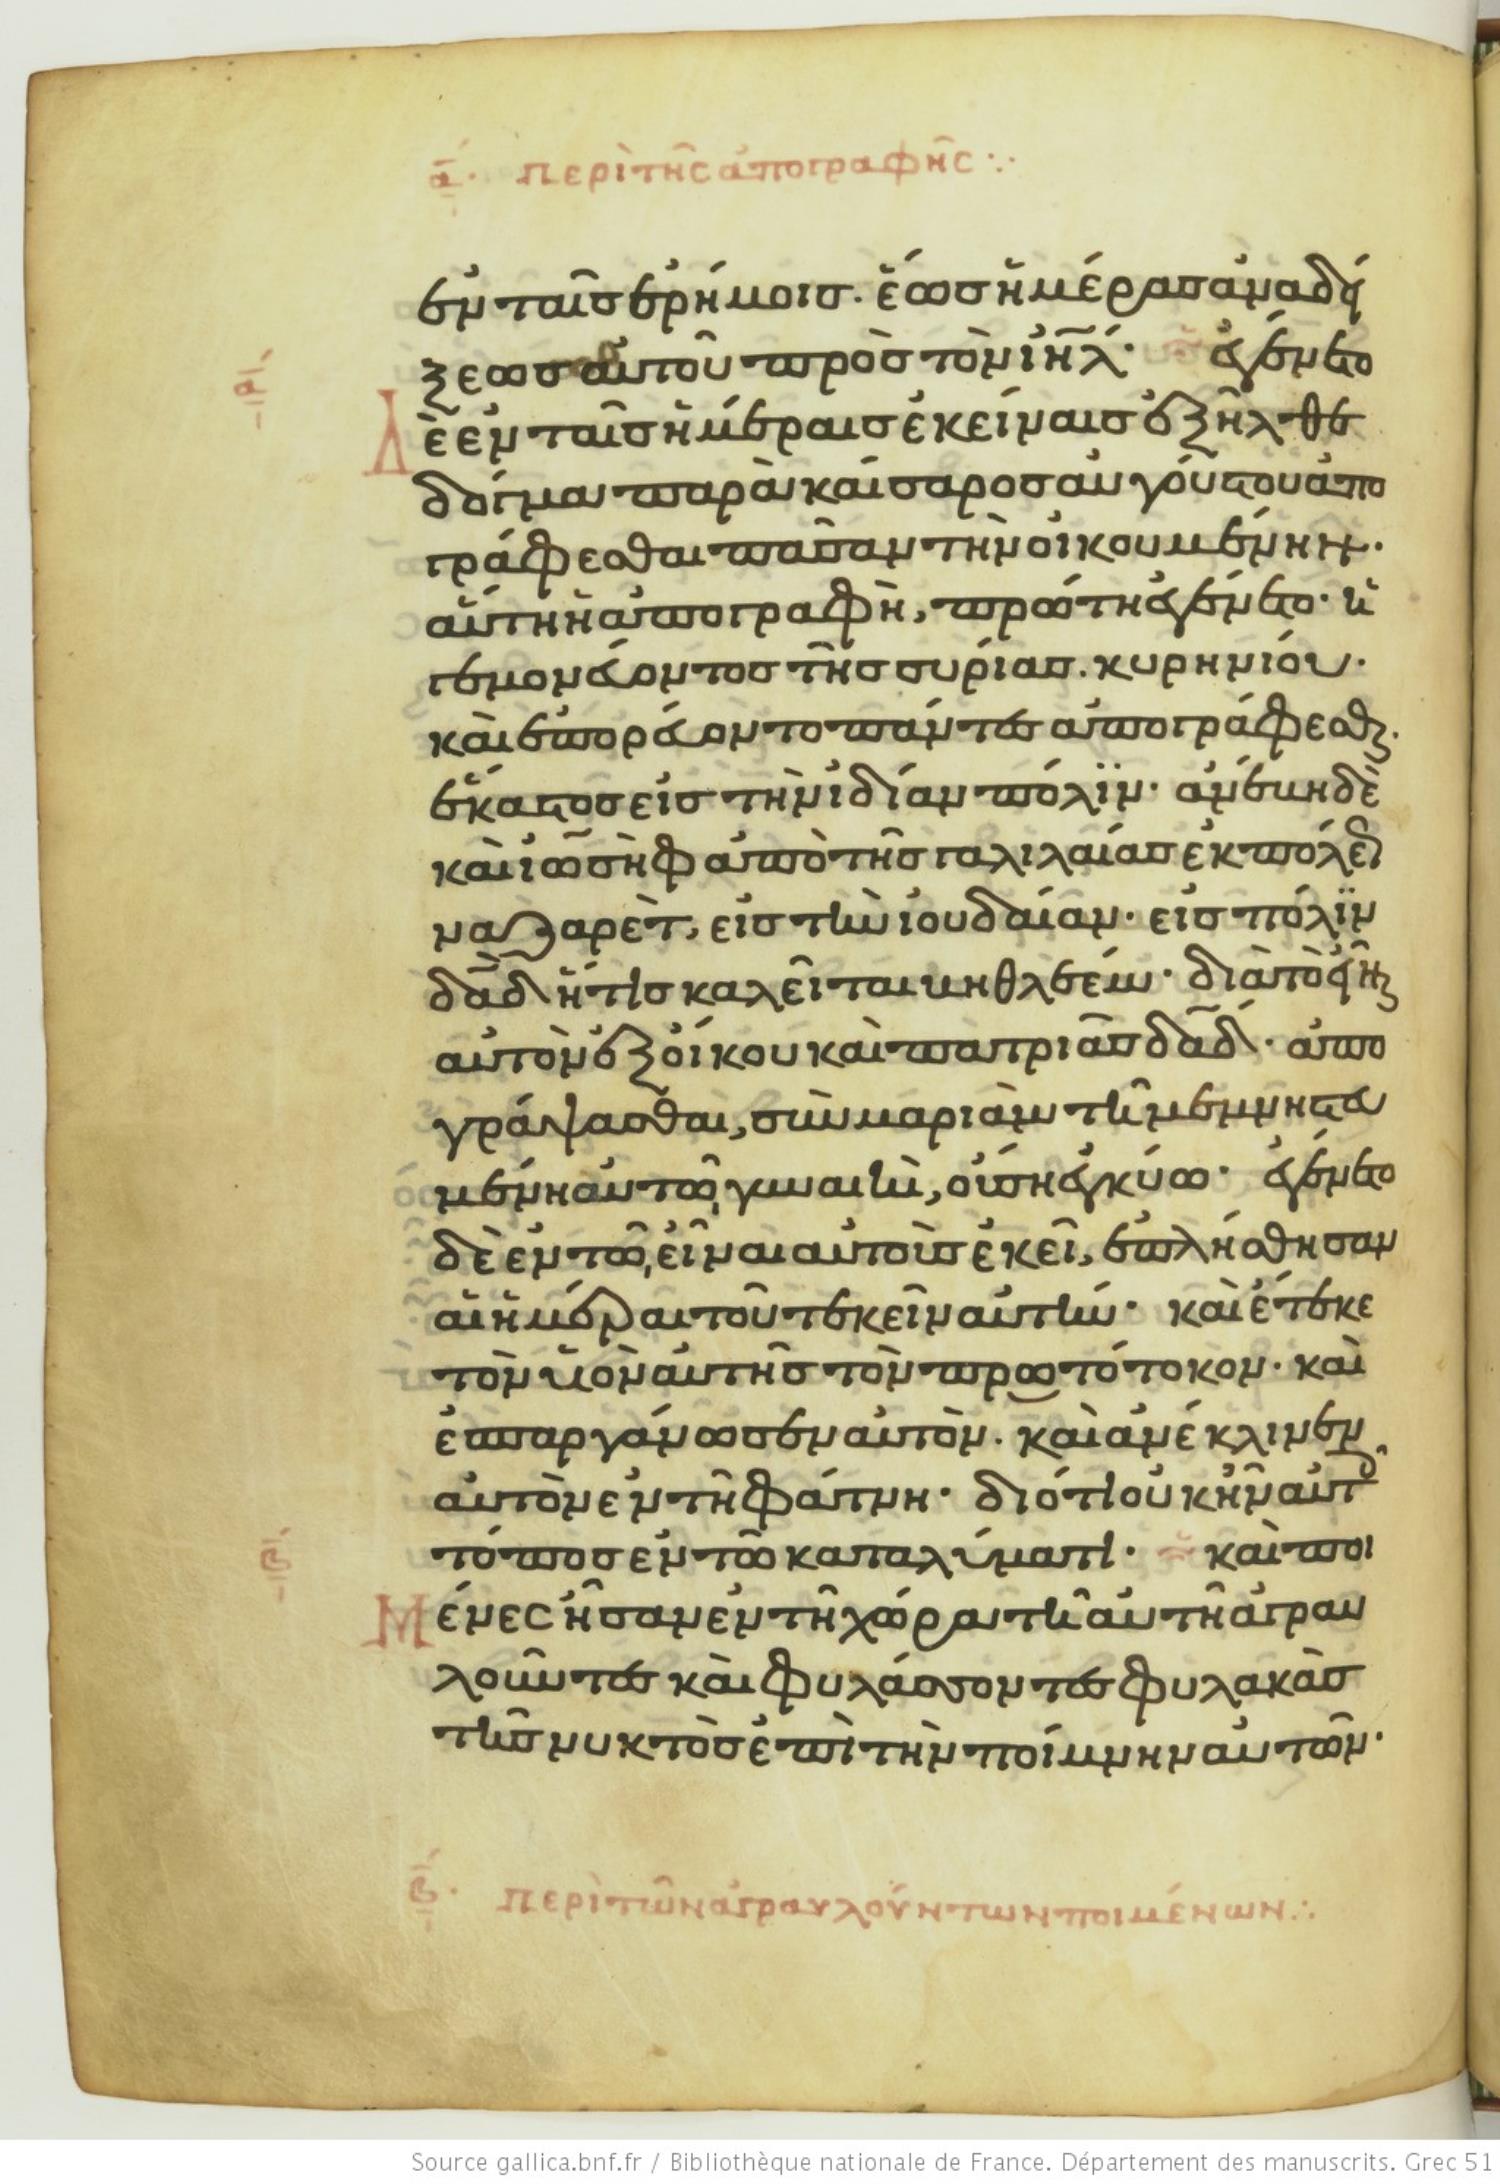 α. περὶ τῆς ἀπογραφῆς ∴
ἐν ταῖς ἐρήμοις. ἕως ἡμέρας ἀναδεί
ξεως αὐτοῦ πρὸς τὸν ιηλ. ἐγένετο
δὲ ἐν ταῖς ἡμέραις ἐκείναις ἐξῆλθε
δόγμα παρὰ καίσαρος αυγούστου ἀπο
γράφεσθαι πᾶσαν τὴν οἰκουμένην.
αὕτη ἡ ἀπογραφὴ, πρώτη ἐγένετο. ἡ
γεμονεύοντος τῆς συρίας. κυρηνίου.
καὶ ἐπορεύοντο πάντες ἀπογράφεσθαι.
ἕκαστος εἰς τὴν ἰδίαν πόλϊν. ἀνέβη δὲ
καὶ ἰωσὴφ ἀπὸ τῆς γαλιλαίας ἐκ πόλεως
ναζαρὲτ, εἰς τὴν ἰουδαίαν. εἰς πόλϊν
δαδ ἥτις καλεῖται βηθλεέμ. διὰ τὸ εἶναι
αὐτὸν ἐξ οἴκου καὶ πατριᾶς δαδ. ἀπο
γράψασθαι, σὺν μαριὰμ τῆ μεμνηστευ
μένη αὐτῶ, γυναικὶ, οὔση ἐγκύω. ἐγένετο
δὲ ἐν τῶ, εἶναι αὐτοὺς ἐκεῖ, ἐπλήσθησαν
αἱ ἡμέραι τοῦ τεκεῖν αὐτήν. καὶ ἔτεκε
τὸν υἱὸν αὐτῆς τὸν πρωτότοκον. καὶ
ἐσπαργάνωσεν αὐτὸν. καὶ ἀνέκλινεν
αὐτὸν ἐν τῆ φάτνη. διότι οὐκ ἦν αὐτοῖς
τόπος ἐν τῶ καταλύματι. καὶ ποι
α
μένες ἦσαν ἐν τῆ χώρα τῆ αὐτῆ ἀγραυ
β
λοῦντες καὶ φυλάσσοντες φυλακὰς
τῆς νυκτὸς ἐπὶ τὴν ποίμνην αὐτῶν.
β. περὶ τῶν ἀγραυλούντων ποιμένων ∴